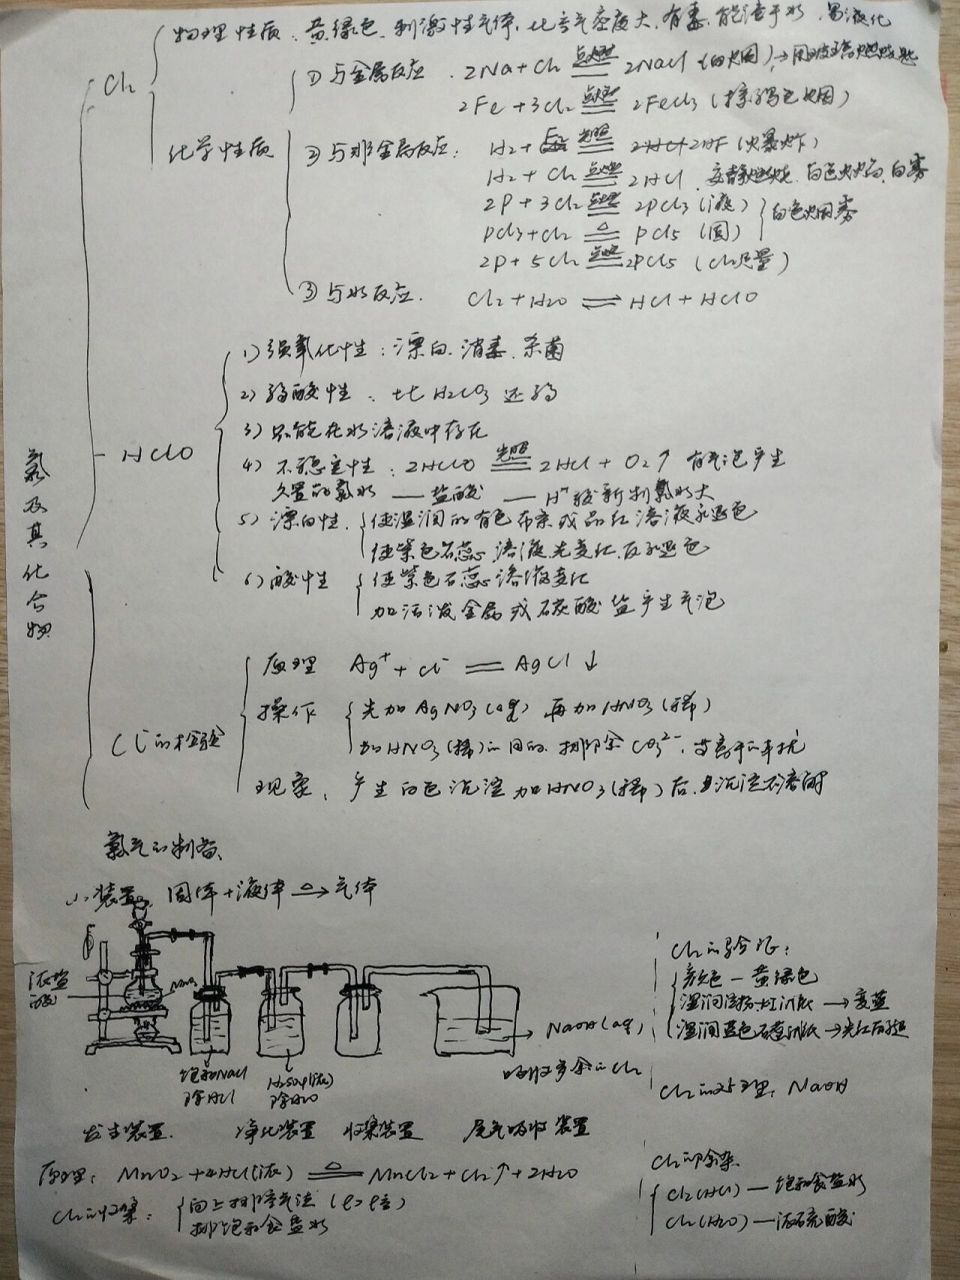 Cl₂
物理性质：黄绿色、刺激性气体，比空气密度大，有毒，能溶于水，易液化
化学性质
① 与金属反应. 2Na+Cl₂ 点燃═ 2NaCl (白烟)→
2Fe+3Cl₂ 点燃═ 2FeCl₃ (棕褐色烟)
② 与非金属反应： H₂+F₂ ═ 2HF (爆炸)
H₂+Cl₂ 点燃═ 2HCl 安静燃烧. 苍白色火焰, 白雾
2P+3Cl₂ 点燃═ 2PCl₃ (液)
PCl₃+Cl₂ △═ PCl₅ (固)
白色烟雾
2P+5Cl₂ 点燃═ 2PCl₅ (Cl₂足量)
③ 与水反应. Cl₂+H₂O ⇌ HCl+HClO
氯及其化合物
HClO
1) 强氧化性：漂白. 消毒. 杀菌
2) 弱酸性. 比H₂CO₃还弱
3) 只能在水溶液中存在
4) 不稳定性：2HClO 光照═ 2HCl+O₂↑ 有气泡产生
久置的氯水 — 盐酸 — H⁺较新制氯水大
5) 漂白性. 使湿润的有色布条或品红溶液永久褪色
使紫色石蕊溶液先变红.后褪色
6) 酸性 使紫色石蕊溶液变红
加活泼金属或碳酸盐产生气泡
Cl⁻的检验
原理 Ag⁺+Cl⁻═AgCl↓
操作 先加AgNO₃(aq) 再加HNO₃(稀)
加HNO₃(稀)的目的. 排除CO₃²⁻.等离子的干扰
现象. 产生白色沉淀 加HNO₃(稀)后.且沉淀不溶解
氯气的制备
1、装置 固体+液体 △→ 气体
浓盐酸
MnO₂
饱和NaCl
除HCl
H₂SO₄(浓)
除H₂O
NaOH(aq)
吸收多余的Cl₂
发生装置. 净化装置 收集装置 尾气吸收装置
原理：MnO₂+4HCl(浓) △═ MnCl₂+Cl₂↑+2H₂O
Cl₂的收集： 向上排空气法 (ρ>ρ空)
排饱和食盐水
Cl₂的验证：
颜色—黄绿色
湿润淀粉KI试纸→变蓝
湿润蓝色石蕊试纸→先红后褪
Cl₂的处理：NaOH
Cl₂的除杂
Cl₂(HCl)—饱和食盐水
Cl₂(H₂O)—浓硫酸